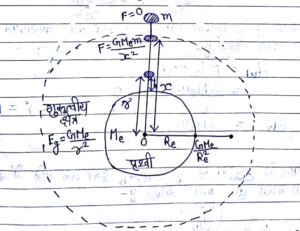 F=0 m
F=GMem/x²
x
r
गुरुत्वीय
क्षेत्र
Eg=GMe/r²
Me
Re
O
GMe/Re²
पृथ्वी